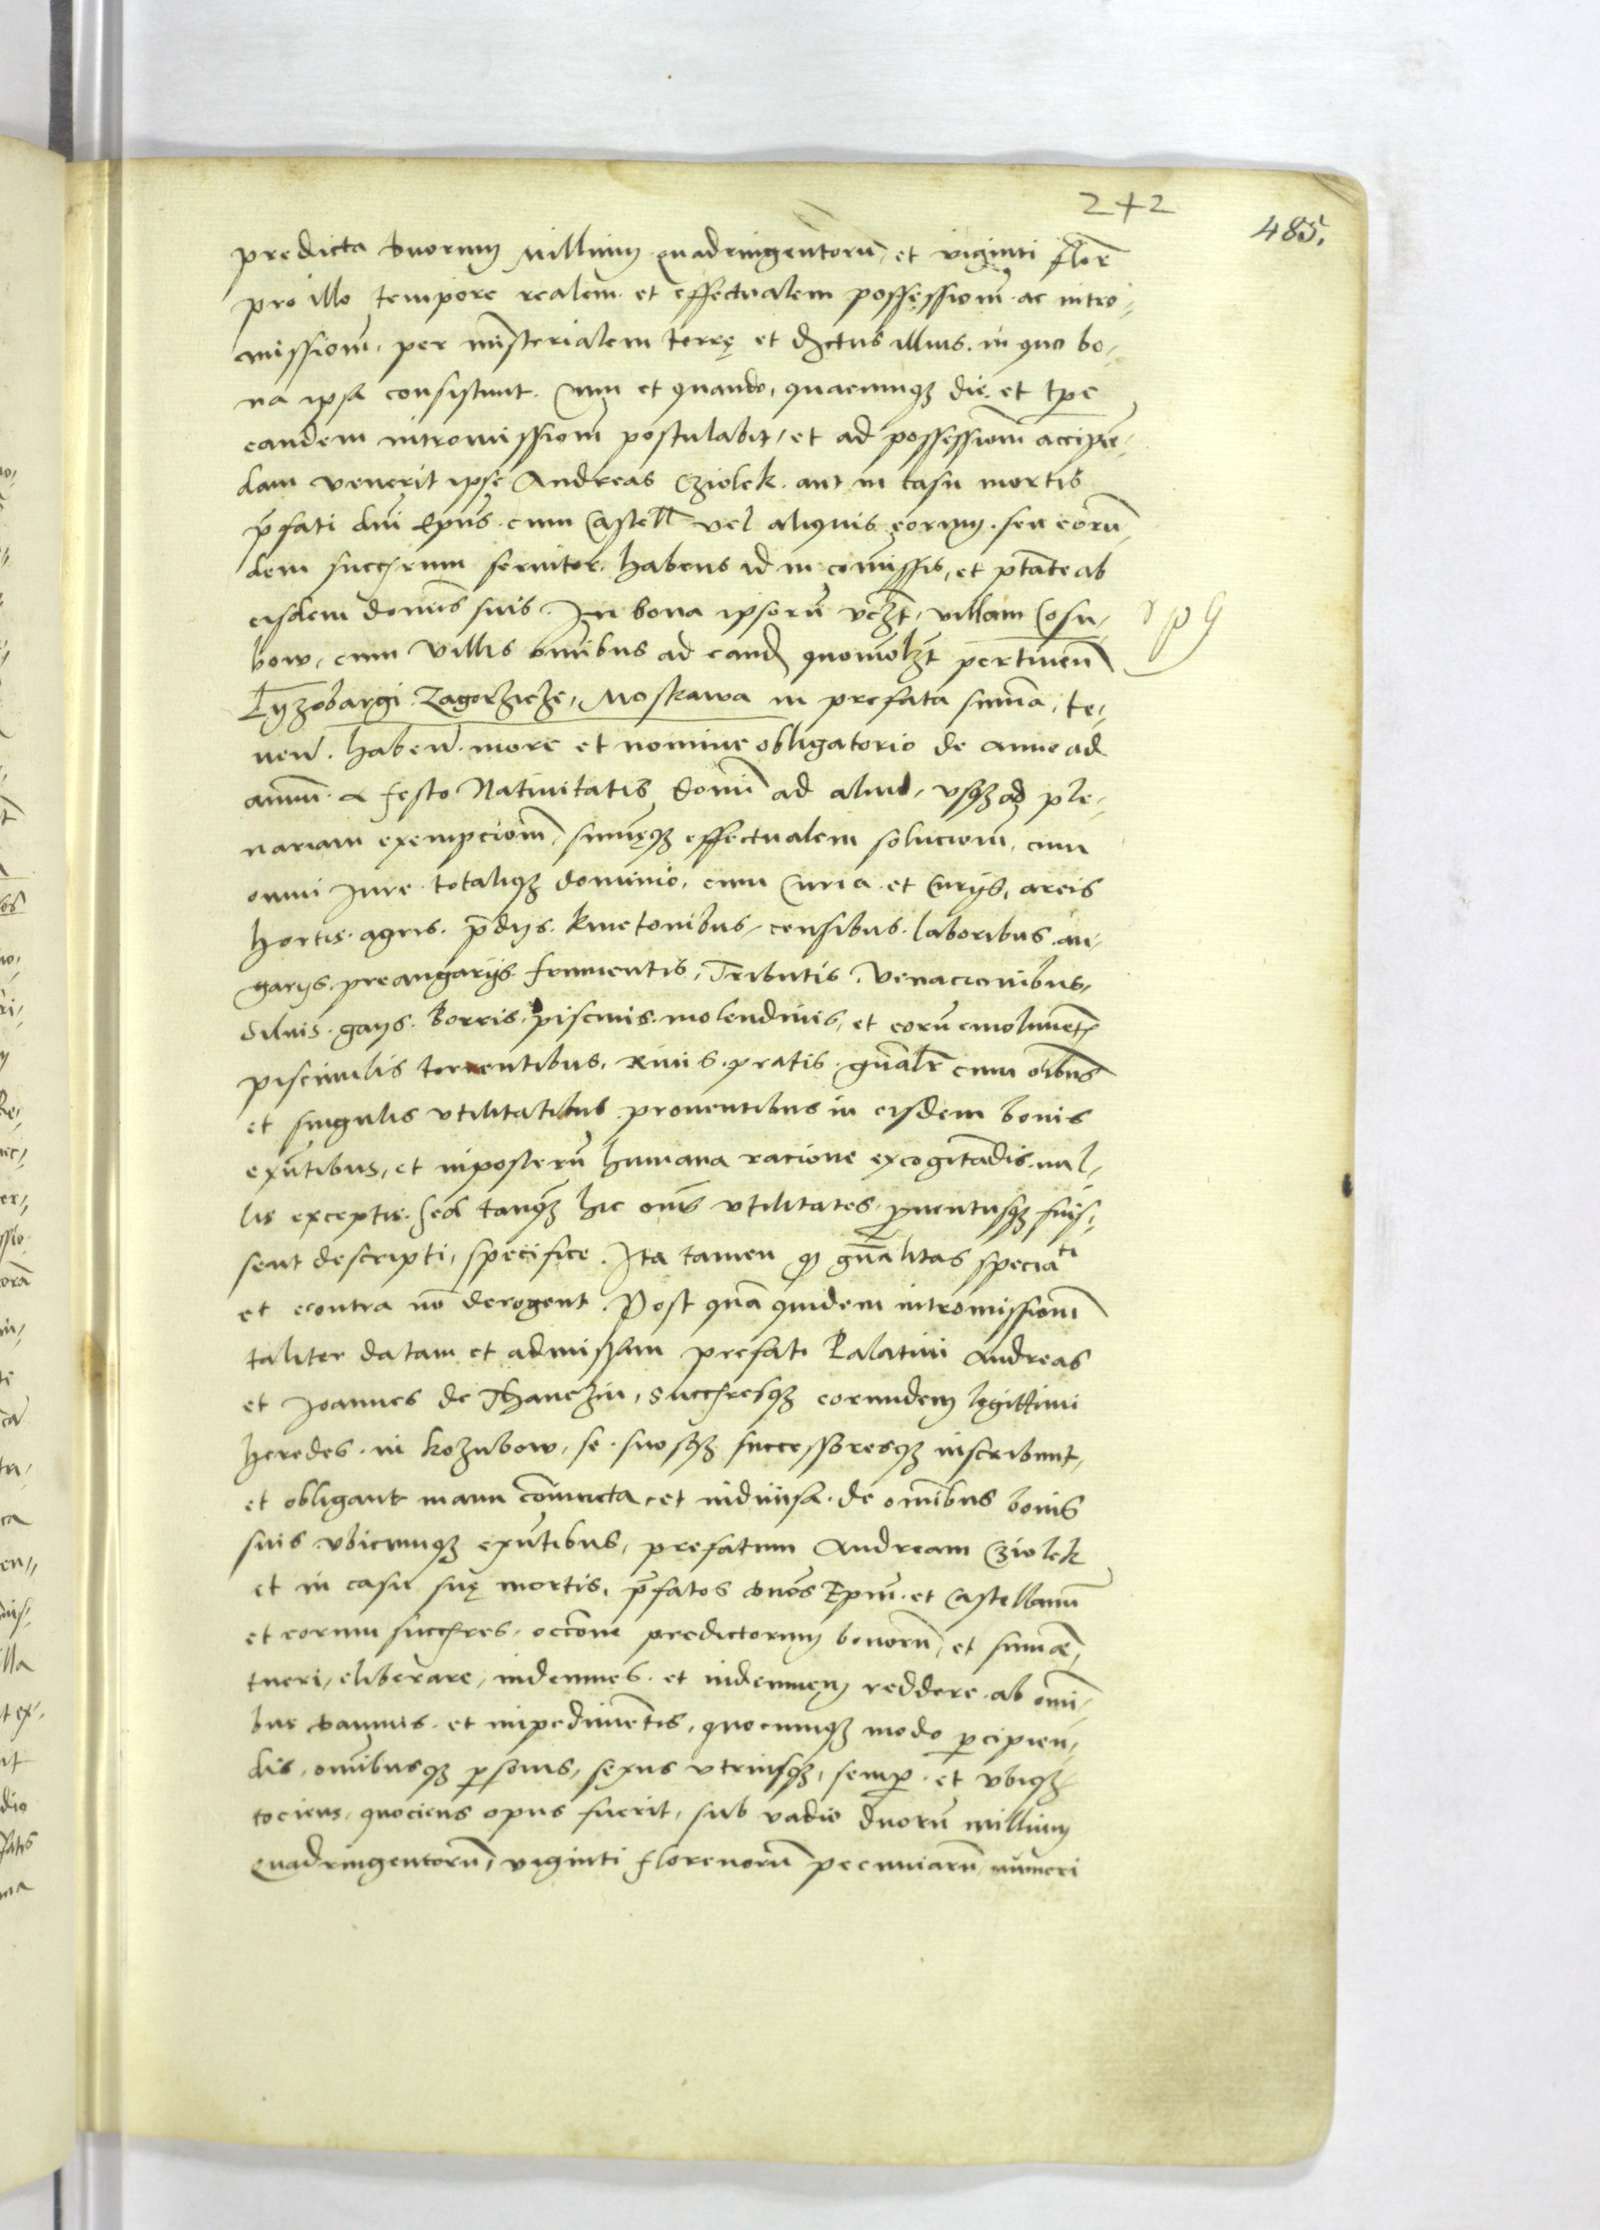 242
485.
predicta duorum Millium quadringentorũ, et viginti florẽ
pro illo tempore realem et effectualem possessionẽ ac intro,
missionẽ, per ministerialem terrę et districtus illius, in quo bo,
na ipsa consistunt. Cum et quando, quacumqз die et tpe
eandem intromissionẽ postulabit, et ad possessionẽ accipiẽ,
dam venerit ipse Andreas Cziolek, aut in casu mortis
p̃fati dni Epus cum Castell vel aliquis eorum, seu eorũ,
dem succrum seruitor habens id in comissis, et ptãte ab
eisdem dominis suis. In bona ipsorũ vczt, villam Cosu,
bow, cum villis omibus ad eand quomolzt pertineñ
Lyzobargi Zagorzicze, Moskawa in prefata sũma, te,
neñ. habeñ. more et nomine obligatorio de anno ad
annũ a festo Natiuitatis Domi ad aliud, vsqз ad ple,
nariam exempcionẽ, sumęqз effectualem solucionẽ, cum
omni iure totaliqз dominio, cum Curia et Curijs, areis
hortis, agris, p̃dijs, kmetonibus, censibus, laboribus, an,
garijs, preangarijs, frumentis, Tributis, Venacionibus,
Siluis, gays, borris, piscinis, molendinis, et eorũ emolumẽt
piscinulis torrentibus, riuis, pratis, gñalr cum oibus
et singulis vtilitatibus prouentibus in eisdem bonis
exñtibus, et inposterũ humana racione excogitãdis, nul,
lis exceptis. Sed tanqз hic omes vtilitates, puentusqз fuis,
sent descripti, specifice. Ita tamen q gñalitas speciati
et econtra nõ derogent. Post quã quidem intromissionẽ
taliter datam et admissam prefati Palatini Andreas
et Joannes de Thanczin, succresqз eorundem legittimi
heredes in Kozubow, se, suosqз successoresqз inscribunt,
et obligant manu coniuncta, et indiuisa, de omibus bonis
suis vbicumqз exñtibus, prefatum Andream Cziolek
et in casu suę mortis, p̃fatos dnos Epum et Castellanũ
et eorum succres, occone predictorum bonorũ, et sumæ,
tueri, eliberare, indemnes, et indemnem reddere ab omi,
bus damnis, et impedimẽtis, quocumqз modo pcipien,
dis, omibusqз psonis, sexus vtriusqз, semp, et vbiqз
tociens, quociens opus fuerit, sub vadio duorũ millium
quadringentorũ, viginti florenorũ pecuniarũ, numeri